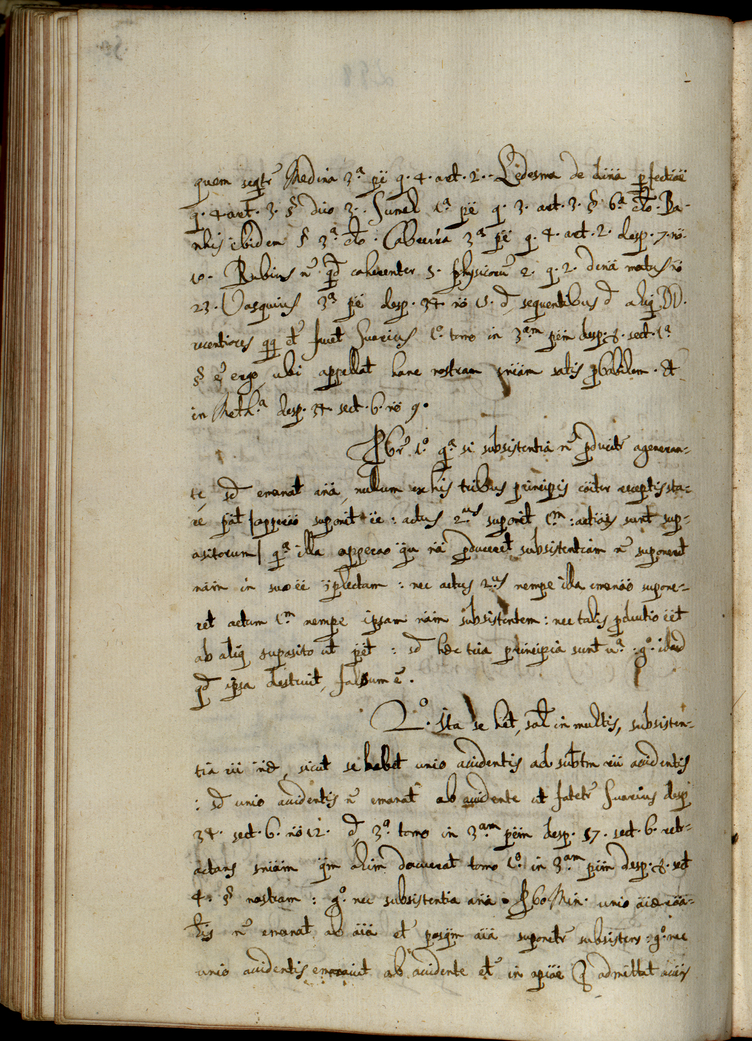 quem seqtr Medina 3ª pe q. 4. art. 2. Ledesma de diuã perfectiõe
q. 4. art. 3. § dico 3. Sumel 1ª pe q. 3. art. 3. § 6ª clo. Ba-
nhes ibidem § 3ª clo. Cabrera 3ª pe q. 4. art. 2. desp. 7. nõ
10. Rubius coherenter 5. physicorũ 2. q. 2. denã motus nõ
23. Vasquius 3ª pe desp. 34 nõ 15. sequentibus aliq DD.
recentiores qq et fauet Suarius 1º tomo in 3.am pem desp. 8. sect. 1ª
§ ergo, ubi appellat hanc nostram sniam satis pbabilem. Et
in Meth.ª desp. 34. sect. 6. nõ 9.
Pbr 1º qª si subsistentia ñ pducitr ageneran-
te, sd emanat anã, nullum ex his tribus principijs coiter receptis sta-
re pãt | apperao suponit ee : actus 2.us suponit 1.m : actiões sunt sup-
ositorum | qª illa apperao qu nã pduceret subsistentiam ñ suponeret
nãm in suo ee cplectam : nec actus 2.us nempe illa emanão supone-
ret actum 1.m nempe ipsam nãm subsistentem : nec talis pductio eet
ab aliq suposito ut pet : sd hæc tria principia sunt uª : gº illud
qd ipsa destruit, falsum ẽ.
2º. ita se het, salt in multis, subsisten-
tia rei , sicut se habet unio accidentis ad subtm rei accidentis
: sd unio accidentis ñ emanat ab accidente ut fatetr Suarius desp
34. sect. 6. nõ 12. 3º tomo in 3.am pem desp. 57. sect. 6. retr-
actans sniam qm alim docuerat tomo 1º. in 3.am pem desp. 8. sect
4. § nostram : gº. nec subsistentia anã. Pbo Min. unio
ñ emanat ab aiã et posqm aiã suponitr subsistens : gº. nec
unio accidentis emanauit ab accidente et in admittat